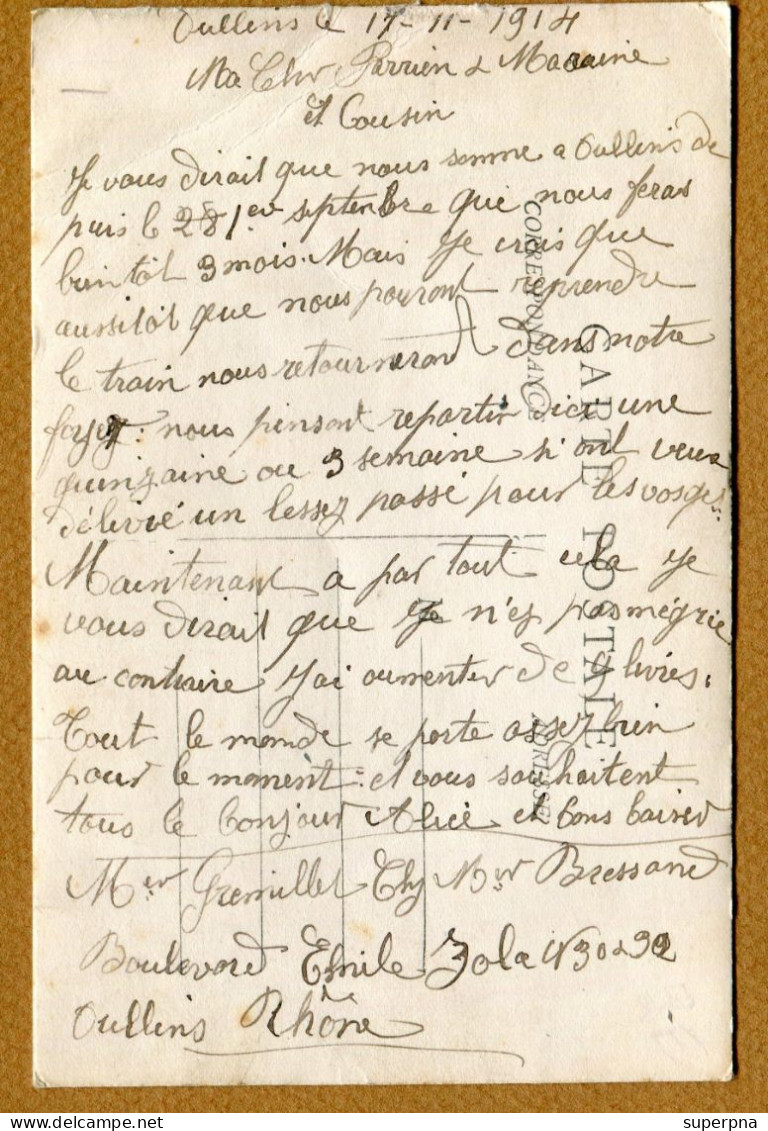 Oullins le 17-11-1914
Ma Cher Parrien & Maraine
et Cousin
Je vous dirait que nous somme a Oullins de
puis le 1er septenbre que nous feras
bientôt 3 mois. Mais Je crois que
aussitôt que nous pouront reprendre
le train nous retournerond dans notre
foyer: nous pensont repartir ici une
quinzaine ou 3 semaine si ont veux
délivré un lessez passé pour les vosges.
Maintenant a par tout cela je
vous dirait que Je n'ez pas mégrie
au contraire J'ai oumenter de livres.
Tout le monde se porte assez bien
pour le moment: et vous souhaitent
tous le bonjour Alice et bons baiser
Mer Gremillet Chz Mer Bressand
Boulevard Emile Zola N 30 & 32
Oullins Rhône
CARTE POSTALE
CORRESPONDANCE
ADRESSE
superpna